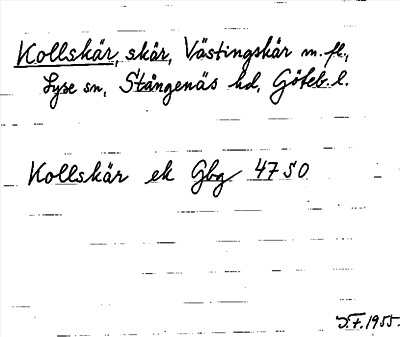 Kollskär, skär, Västingskär m. fl.,
Lyse sn, Stångenäs hd, Göteb. l.
Kollskär ek Gbg 47 SO
J.F. 1955.